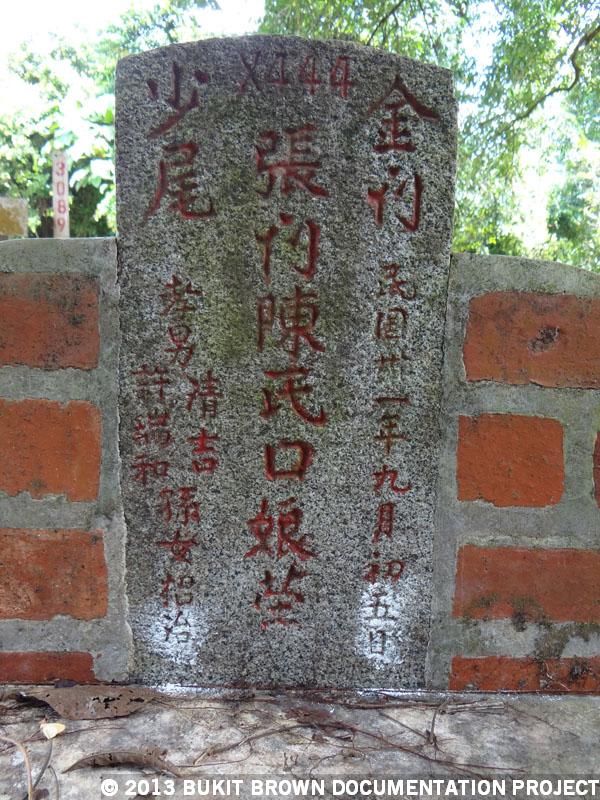 X444
金門
民国卅一年九月初五日
張門陳氏口娘塋
少尾
孝男清吉
許瑞和
孫女招治
3089
© 2013 BUKIT BROWN DOCUMENTATION PROJECT